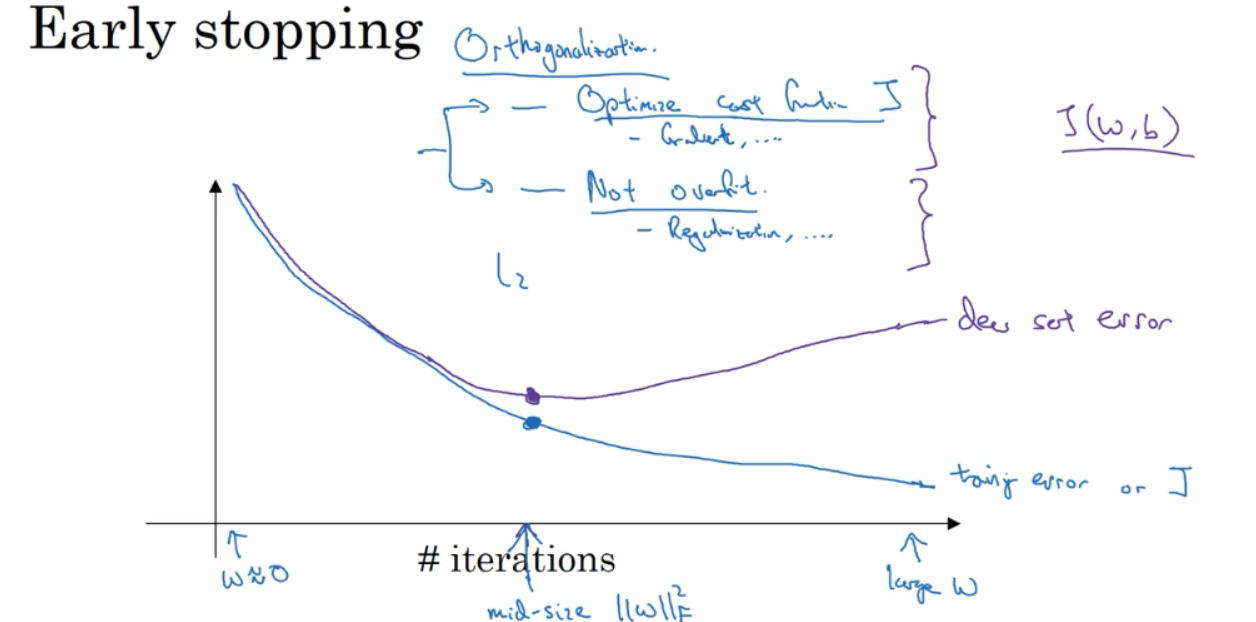 Early stopping
Orthogonalization.
— Optimize cost function J
- Gradient, ....
J(w,b)
— Not overfit.
- Regularization, ....
L2
dev set error
training error or J
w≈0
# iterations
mid-size ||w||²F
large w